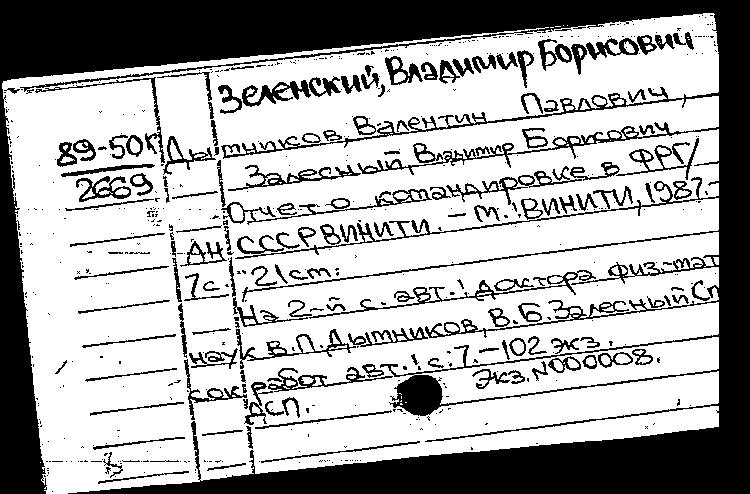 Зеленский, Владимир Борисович
89-50к
2669
Дымников, Валентин Павлович,
Залесный, Владимир Борисович
Отчет о командировке в ФРГ/
АН СССР, ВИНИТИ. – М.: ВИНИТИ, 1987.–
7с.; 21см.
На 2-й с. авт.: доктора физ.-мат
наук В.П. Дымников, В.Б. Залесный. Сп
сок работ авт.: с. 7. – 102 экз.
Экз. N000008.
ДСП.